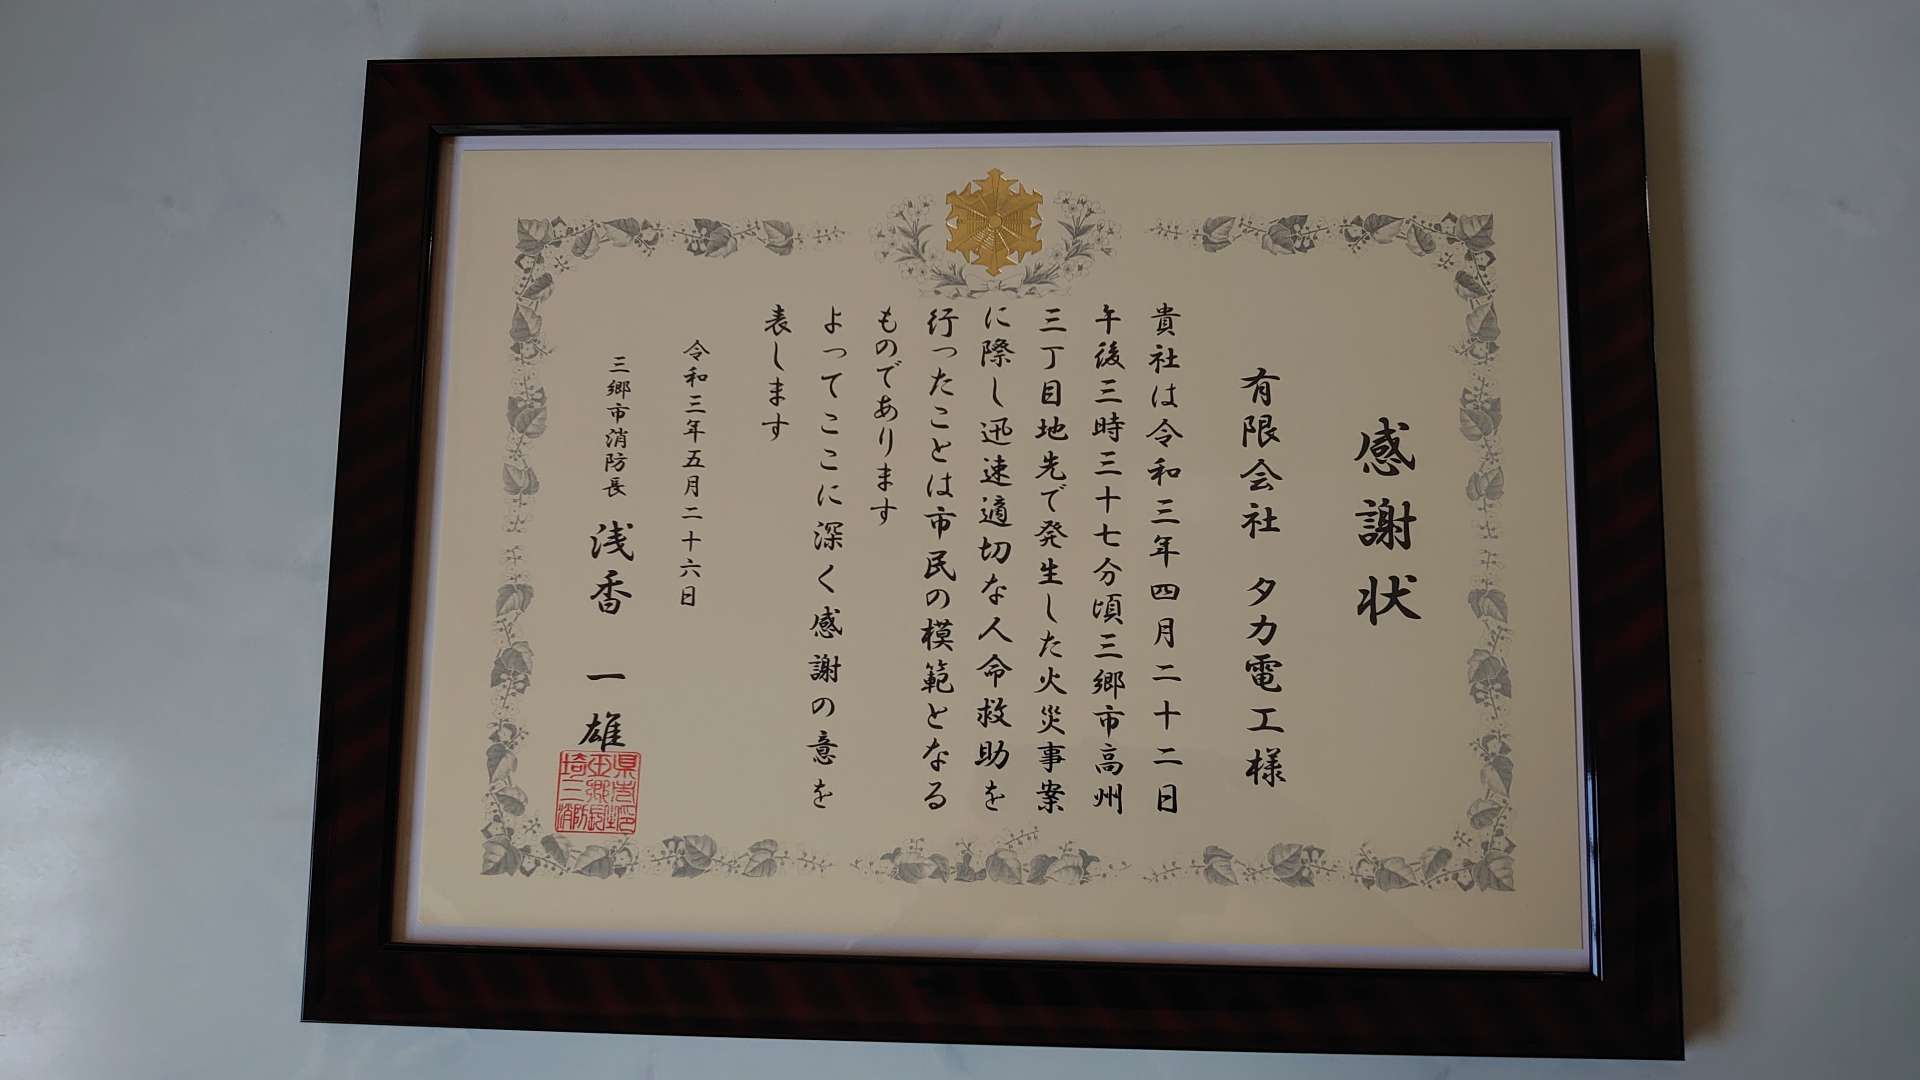 感謝状
有限会社 タカ電工様
貴社は令和三年四月二十二日
午後三時三十七分頃三郷市高州
三丁目地先で発生した火災事案
に際し迅速適切な人命救助を
行ったことは市民の模範となる
ものであります
よってここに深く感謝の意を
表します
令和三年五月二十六日
三郷市消防長 浅香 一雄